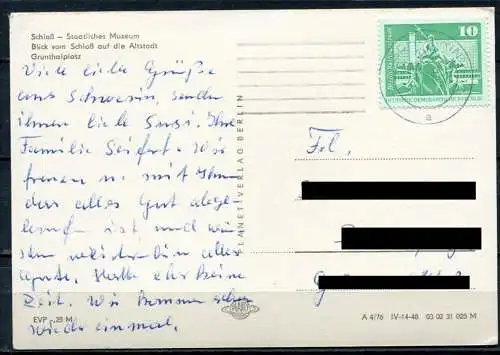 Schloß – Staatliches Museum
Blick vom Schloß auf die Altstadt
Grunthalplatz
Viele liebe Grüße
aus Schwerin, senden
ihnen liebe Susi. Ihre
Familie Seifert. Wir
freuen u. mit Ihnen
das alles Gut abge-
laufen ist und wün-
schen weiterhin alles
gute. Hatte eher keine
Zeit. Wir kommen schon
wieder einmal.
EVP -,25 M
PLANET-VERLAG BERLIN
10
DEUTSCHE DEMOKRATISCHE REPUBLIK
a
Frl.
A 4/76 IV-14-48 03 02 31 025 M